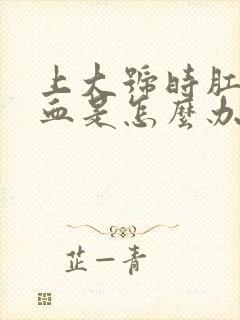 上大號時肛
血是怎麼办
芷一青